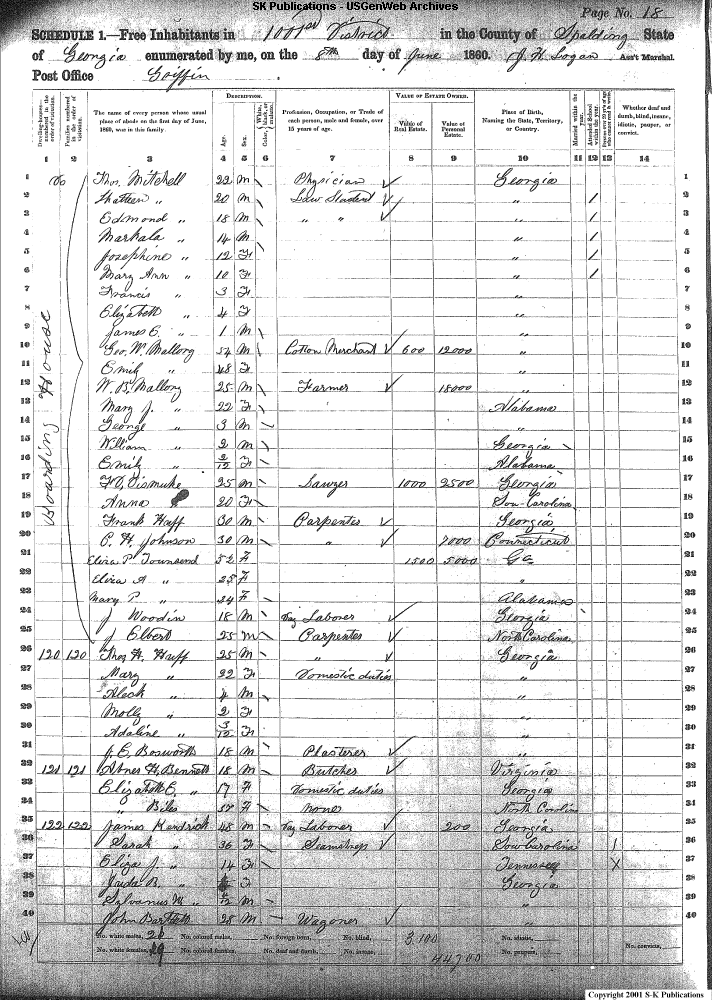 SK Publications - USGenWeb Archives
Page No. 18
SCHEDULE 1.—Free Inhabitants in 1001st District in the County of Spalding State
of Georgia enumerated by me, on the 8th day of June 1860. J. H. Logan Ass't Marshal.
Post Office Griffin
Dwelling-houses— numbered in the order of visitation.
Families numbered in the order of visitation.
The name of every person whose usual place of abode on the first day of June, 1860, was in this family.
DESCRIPTION.
Age.
Sex.
Color, White, black, or mulatto.
Profession, Occupation, or Trade of each person, male and female, over 15 years of age.
VALUE OF ESTATE OWNED.
Value of Real Estate.
Value of Personal Estate.
Place of Birth, Naming the State, Territory, or Country.
Married within the year.
Attended School within the year.
Whether deaf and dumb, blind, insane, idiotic, pauper, or convict.
1 2 3 4 5 6 7 8 9 10 11 12 13 14
Boarding House
1 Thos. Mitchell 22 M \ Physician ✓ Georgia 1
2 " 20 M \ Law Student ✓ " / 2
3 Edmond " 18 M \ " " ✓ " / 3
4 " 14 M " / 4
5 Josephine " 12 F \ " / 5
6 Mary Ann " 10 F " / 6
7 Francis " 3 F " 7
8 Elizabeth " 4 F " 8
9 James C. " 1 M \ " 9
10 Geo. W. Mallory 54 M \ Cotton Merchant ✓ 600 12000 " 10
11 Emily " 48 F " 11
12 W. B. Mallory 25 M \ Farmer ✓ 18000 " 12
13 Mary J. " 22 F \ Alabama 13
14 George " 3 M " 14
15 William " 2 M \ Georgia 15
16 Emily " 2/12 F Alabama 16
17 Dismuke 25 M \ Sawyer 1000 2500 Georgia 17
18 Anna " 20 F Sou Carolina 18
19 Frank Huff 30 M \ Carpenter ✓ Georgia 19
20 C. H. Johnson 30 M \ " ✓ 7000 Connecticut 20
21 Eliza P. Townsend 52 F 1500 5000 Ga 21
22 Eliza A " 25 F " 22
23 Mary P. " 24 F Alabama 23
24 J Woodin 18 M \ Day Laborer ✓ Georgia 24
25 J Elbert 25 M Carpenter ✓ North Carolina 25
26 120 120 Thos H. Huff 25 M \ " ✓ Georgia 26
27 Mary " 22 F Domestic duties " 27
28 Aleck " 4 M \ " 28
29 Molly " 2 F " 29
30 Adaline " 3/12 F " 30
31 J. E. Bosworth 18 M \ Plasterer ✓ " 31
32 121 121 Abner H. Bennett 18 M Butcher ✓ Virginia 32
33 Elizabeth C. " 17 F Domestic duties Georgia 33
34 " Biles 57 F none North Carolina 34
35 122 122 James Kendrick 48 M Day Laborer ✓ 200 Georgia 35
36 Sarah " 36 F Seamstress ✓ Sou Carolina / 36
37 Eliza J. " 14 F Tennessee X 37
38 B. " F Georgia 38
39 Sylvanus M " M " 39
40 John Bartlett 28 M Wagoner ✓ " 40
No. white males, No. colored males, No. foreign born, No. blind, 3100 No. idiotic,
No. white females, 19 No. colored females, No. deaf and dumb, No. insane, 44700 No. paupers, No. convicts,
Copyright 2001 S-K Publications